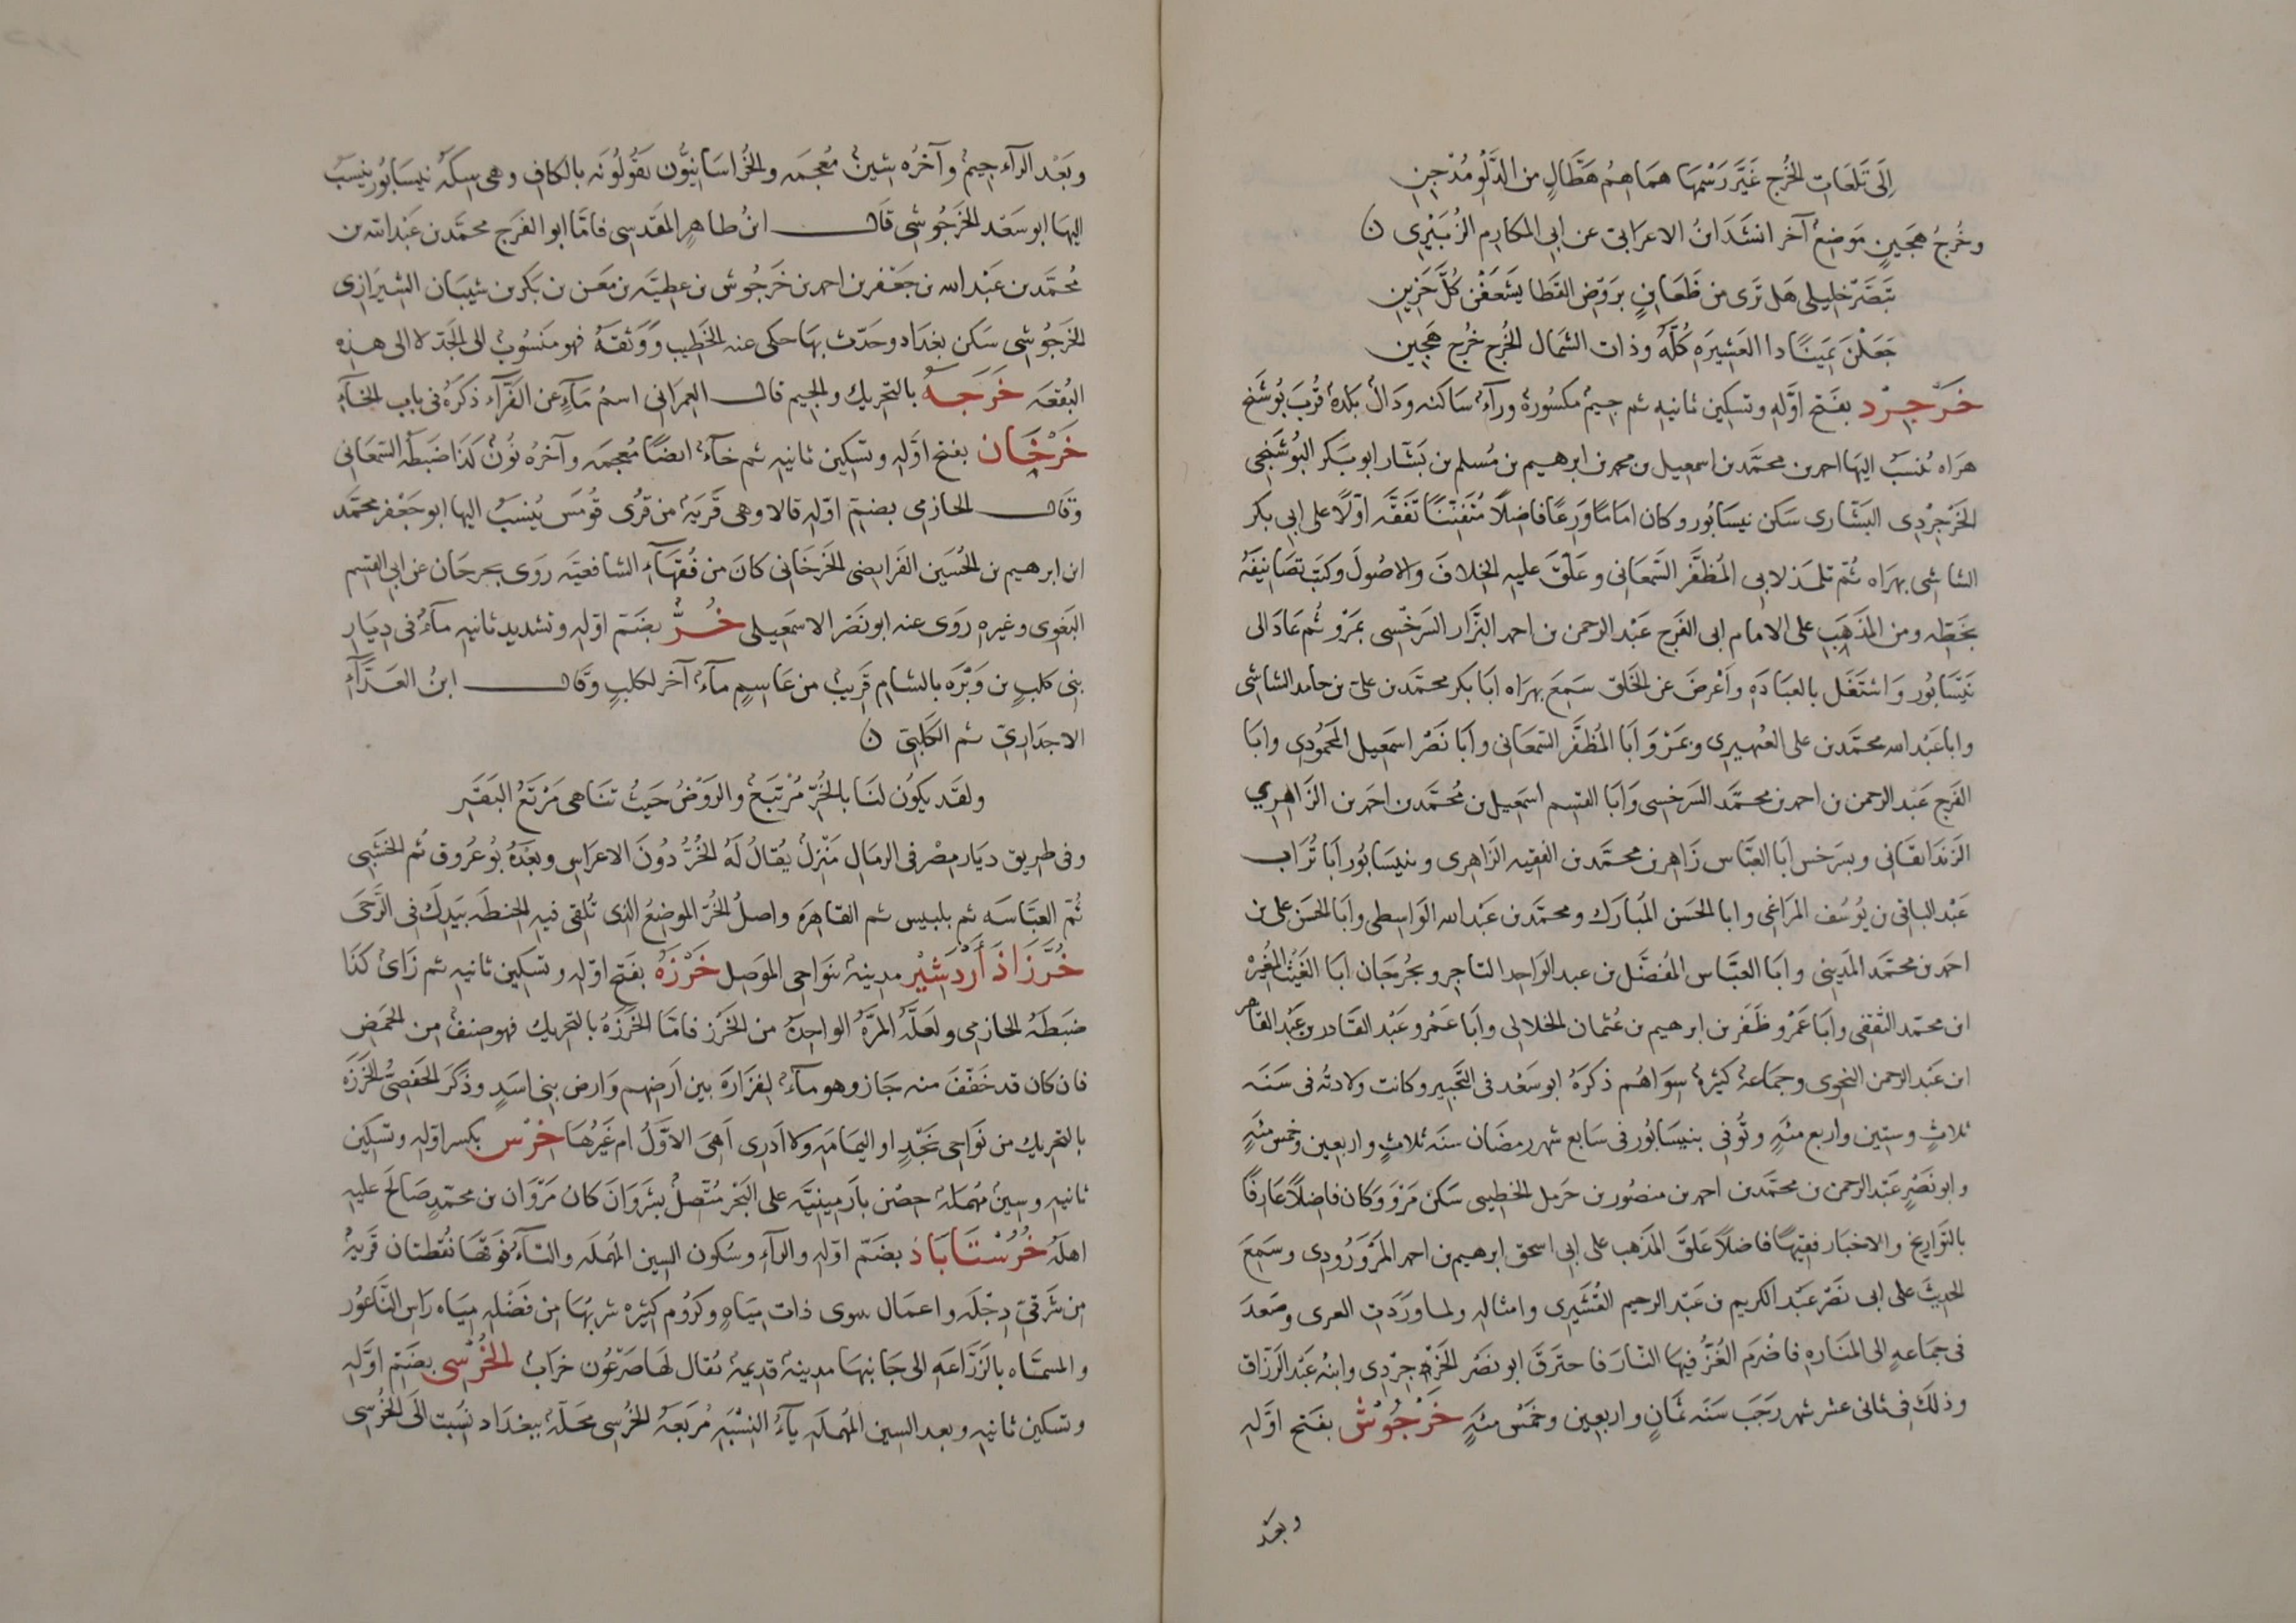 إلى تلعات الخرج غير رسمها هماهم هطال من الدلو مدجن
وخرج هجين موضع آخر انشد ابن الاعرابى عن ابى المكارم الزبيرى ن
تبصر خليلى هل ترى من ظعاين بروض القطا يشعفن كل حزين
جعلن يمينا ذا العشيره كله وذات الشمال الخرج خرج هجين
خرجرد بفتح اوله وتسكين ثانيه ثم جيم مكسورة ورآء ساكنه ودال بلدة قرب بوشنج
هراه ينسب اليها احمد بن محمد بن اسمعيل بن محمد بن ابرهيم بن مسلم بن بشار ابو بكر البوشنجى
الخرجردى البشارى سكن نيسابور وكان اماما ورعا فاضلا متفننا تفقه اولا على ابى بكر
الشاشى بهراه ثم تلمذ لابى المظفر السمعانى وعلق عليه الخلاف والاصول وكتب تصانيفه
بخطه ومن المذهب على الامام ابى الفرج عبد الرحمن بن احمد البزار السرخسى بمرو ثم عاد الى
نيسابور واشتغل بالعباده وأعرض عن الخلق سمع بهراه ابا بكر محمد بن على بن حامد الشاشى
وابا عبد الله محمد بن على العميرى وبمرو أبا المظفر السمعانى وابا نصر اسمعيل المحمودى وابا
الفرج عبد الرحمن بن احمد بن محمد السرخسى وابا القسم اسمعيل بن محمد بن احمد بن الزاهرى
الزندانقانى وبسرخس ابا العباس زاهر بن محمد بن الفقيه الزاهرى وبنيسابور ابا تراب
عبد الباقى بن يوسف المراغى وابا الحسن المبارك ومحمد بن عبد الله الواسطى وابا الحسن على بن
احمد بن محمد المدينى وابا العباس المفضل بن عبد الواحد التاجر وبجرجان ابا الغيث المغيره
ابن محمد الثقفى وابا عمرو ظفر بن ابرهيم بن عثمان الخلالى وأبا عمرو عبد القادر بن عبد القاهر
ابن عبد الرحمن النحوى وجماعة كثيرة سواهم ذكره ابو سعد فى التحبير وكانت ولادته فى سنه
ثلاث وستين واربع مئه وتوفى بنيسابور فى سابع شهر رمضان سنه ثلاث واربعين وخمس مئه
وابو نصر عبد الرحمن بن محمد بن احمد بن منصور بن حرمل الخطيبى سكن مرو وكان فاضلا عارفا
بالتواريخ والاخبار فقيها فاضلا علق المذهب على ابى اسحق ابرهيم بن احمد المروروذى وسمع
الحديث على ابى نصر عبد الكريم بن عبد الرحيم القشيرى وامثاله ولما وردت الغزى وصعد
فى جماعه الى المناره فاضرم الغز فيها النار فاحترق ابو نصر الخرجردى وابنه عبد الرزاق
وذلك فى ثانى عشر شهر رجب سنه ثمان واربعين وخمس مئه خرجوش بفتح اوله
وبعد
وبعد الرآء جيم وآخره شين معجمه والخراسانيون يقولونه بالكاف وهى سكة نيسابور ينسب
اليها ابو سعد الخرجوشى قال ابن طاهر المقدسى فاما ابو الفرج محمد بن عبد الله بن
محمد بن عبد الله بن جعفر بن احمد بن خرجوش بن عطيه بن معن بن بكر بن شيبان الشيرازى
الخرجوشى سكن بغداد وحدث بها حكى عنه الخطيب ووثقه فهو منسوب الى الجد لا الى هذه
البقعه خرجه بالتحريك والجيم قال العمرانى اسم مآء عن الفرآء ذكره فى باب الخآء
خرخان بفتح اوله وتسكين ثانيه ثم خآء ايضا معجمه وآخره نون كذا ضبطه السمعانى
وقال الحازمى بضم اوله قالا وهى قرية من قرى قومس ينسب اليها ابو جعفر محمد
ابن ابرهيم بن الحسين الفرايضى الخرخانى كان من فقهآء الشافعيه روى بجرجان عن ابى القسم
البغوى وغيره روى عنه ابو نصر الاسمعيلى خر بضم اوله وتشديد ثانيه مآء فى ديار
بنى كلب بن وبره بالشام قريب من عاسم مآء آخر لكلب وقال ابن العدآء
الاجدارى ثم الكلبى ن
ولقد يكون لنا بالخر مرتبع والروض حيث تناهى مرتع البقر
وفى طريق ديار مصر فى الرمال منزل يقال له الخر دون الاعراس وبعده بو عروق ثم الخشبى
ثم العباسه ثم بلبيس ثم القاهره واصل الخر الموضع الذى تلقى فيه الحنطه بيدك فى الرحى
خرزاذ أردشير مدينة بنواحى الموصل خرزه بفتح اوله وتسكين ثانيه ثم زاى كذا
ضبطه الحازمى ولعله المرة الواحدة من الخرز فاما الخرزه بالتحريك فهو صنف من الحمض
فان كان قد خفف منه جاز وهو مآء لفزاره بين ارضهم وارض بنى اسد وذكر الحفصى الخرزه
بالتحريك من نواحى نجد او اليمامه ولا ادرى اهى الاول ام غيرها خرس بكسر اوله وتسكين
ثانيه وسين مهملة حصن بارمينيه على البحر متصل بشروان كان مروان بن محمد صالح عليه
اهله خرستاباذ بضم اوله والرآء وسكون السين المهمله والتآء فوقها نقطتان قرية
من شرقى دجله واعمال نينوى ذات مياه وكروم كثيره شربها من فضله مياه راس الناعور
والمسماه بالزراعه الى جانبها مدينة قديمة يقال لها صرعون خراب الخرسى بضم اوله
وتسكين ثانيه وبعد السين المهمله يآء النسبه مربعة الخرسى محلة ببغداد نسبت الى الخرسى